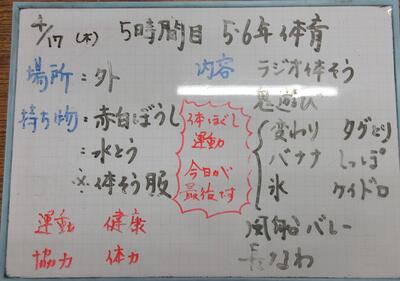 4/17 (木) 5時間目 5・6年 体育
場所:外
持ち物:赤白ぼうし
:水とう
※体そう服
運動 健康
協力 体力
体ほぐし
運動
今日が
最後です
内容 ラジオ体そう
鬼遊び
変わり タグとり
バナナ しっぽ
氷 ケイドロ
風船バレー
長なわ